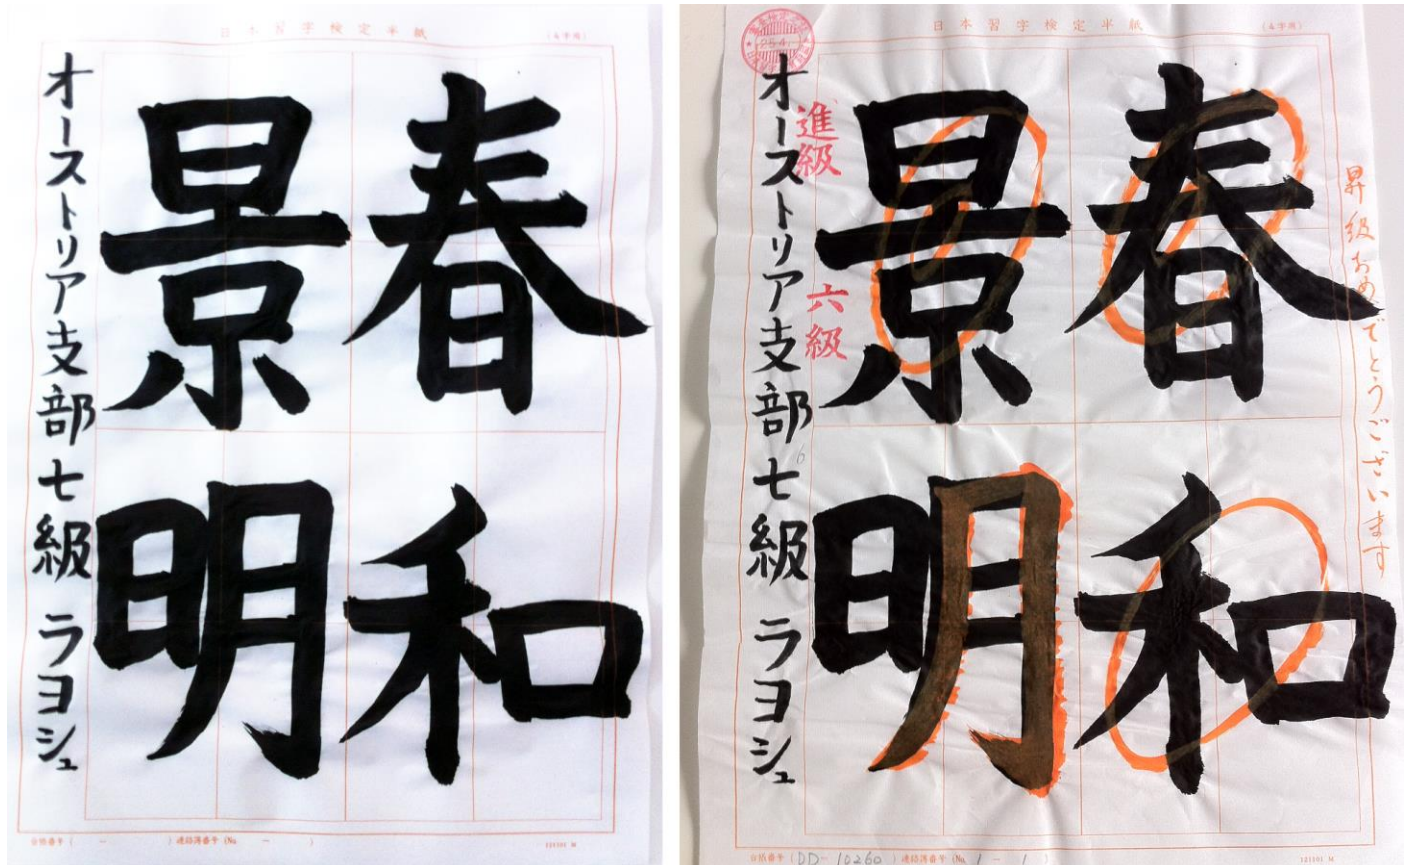 日本習字検定半紙
(4字用)
春和
景明
オーストリア支部 七級 ラヨシュ
台紙番号 ( － ) 連絡簿番号 (No. － )
121501 M
日本習字検定半紙
(4字用)
25.4.
昇級おめでとうございます
春和
景明
進級 六級
オーストリア支部 七級 ラヨシュ
6
台紙番号 ( DD－10260 ) 連絡簿番号 (No. 1 － 1 )
121501 M